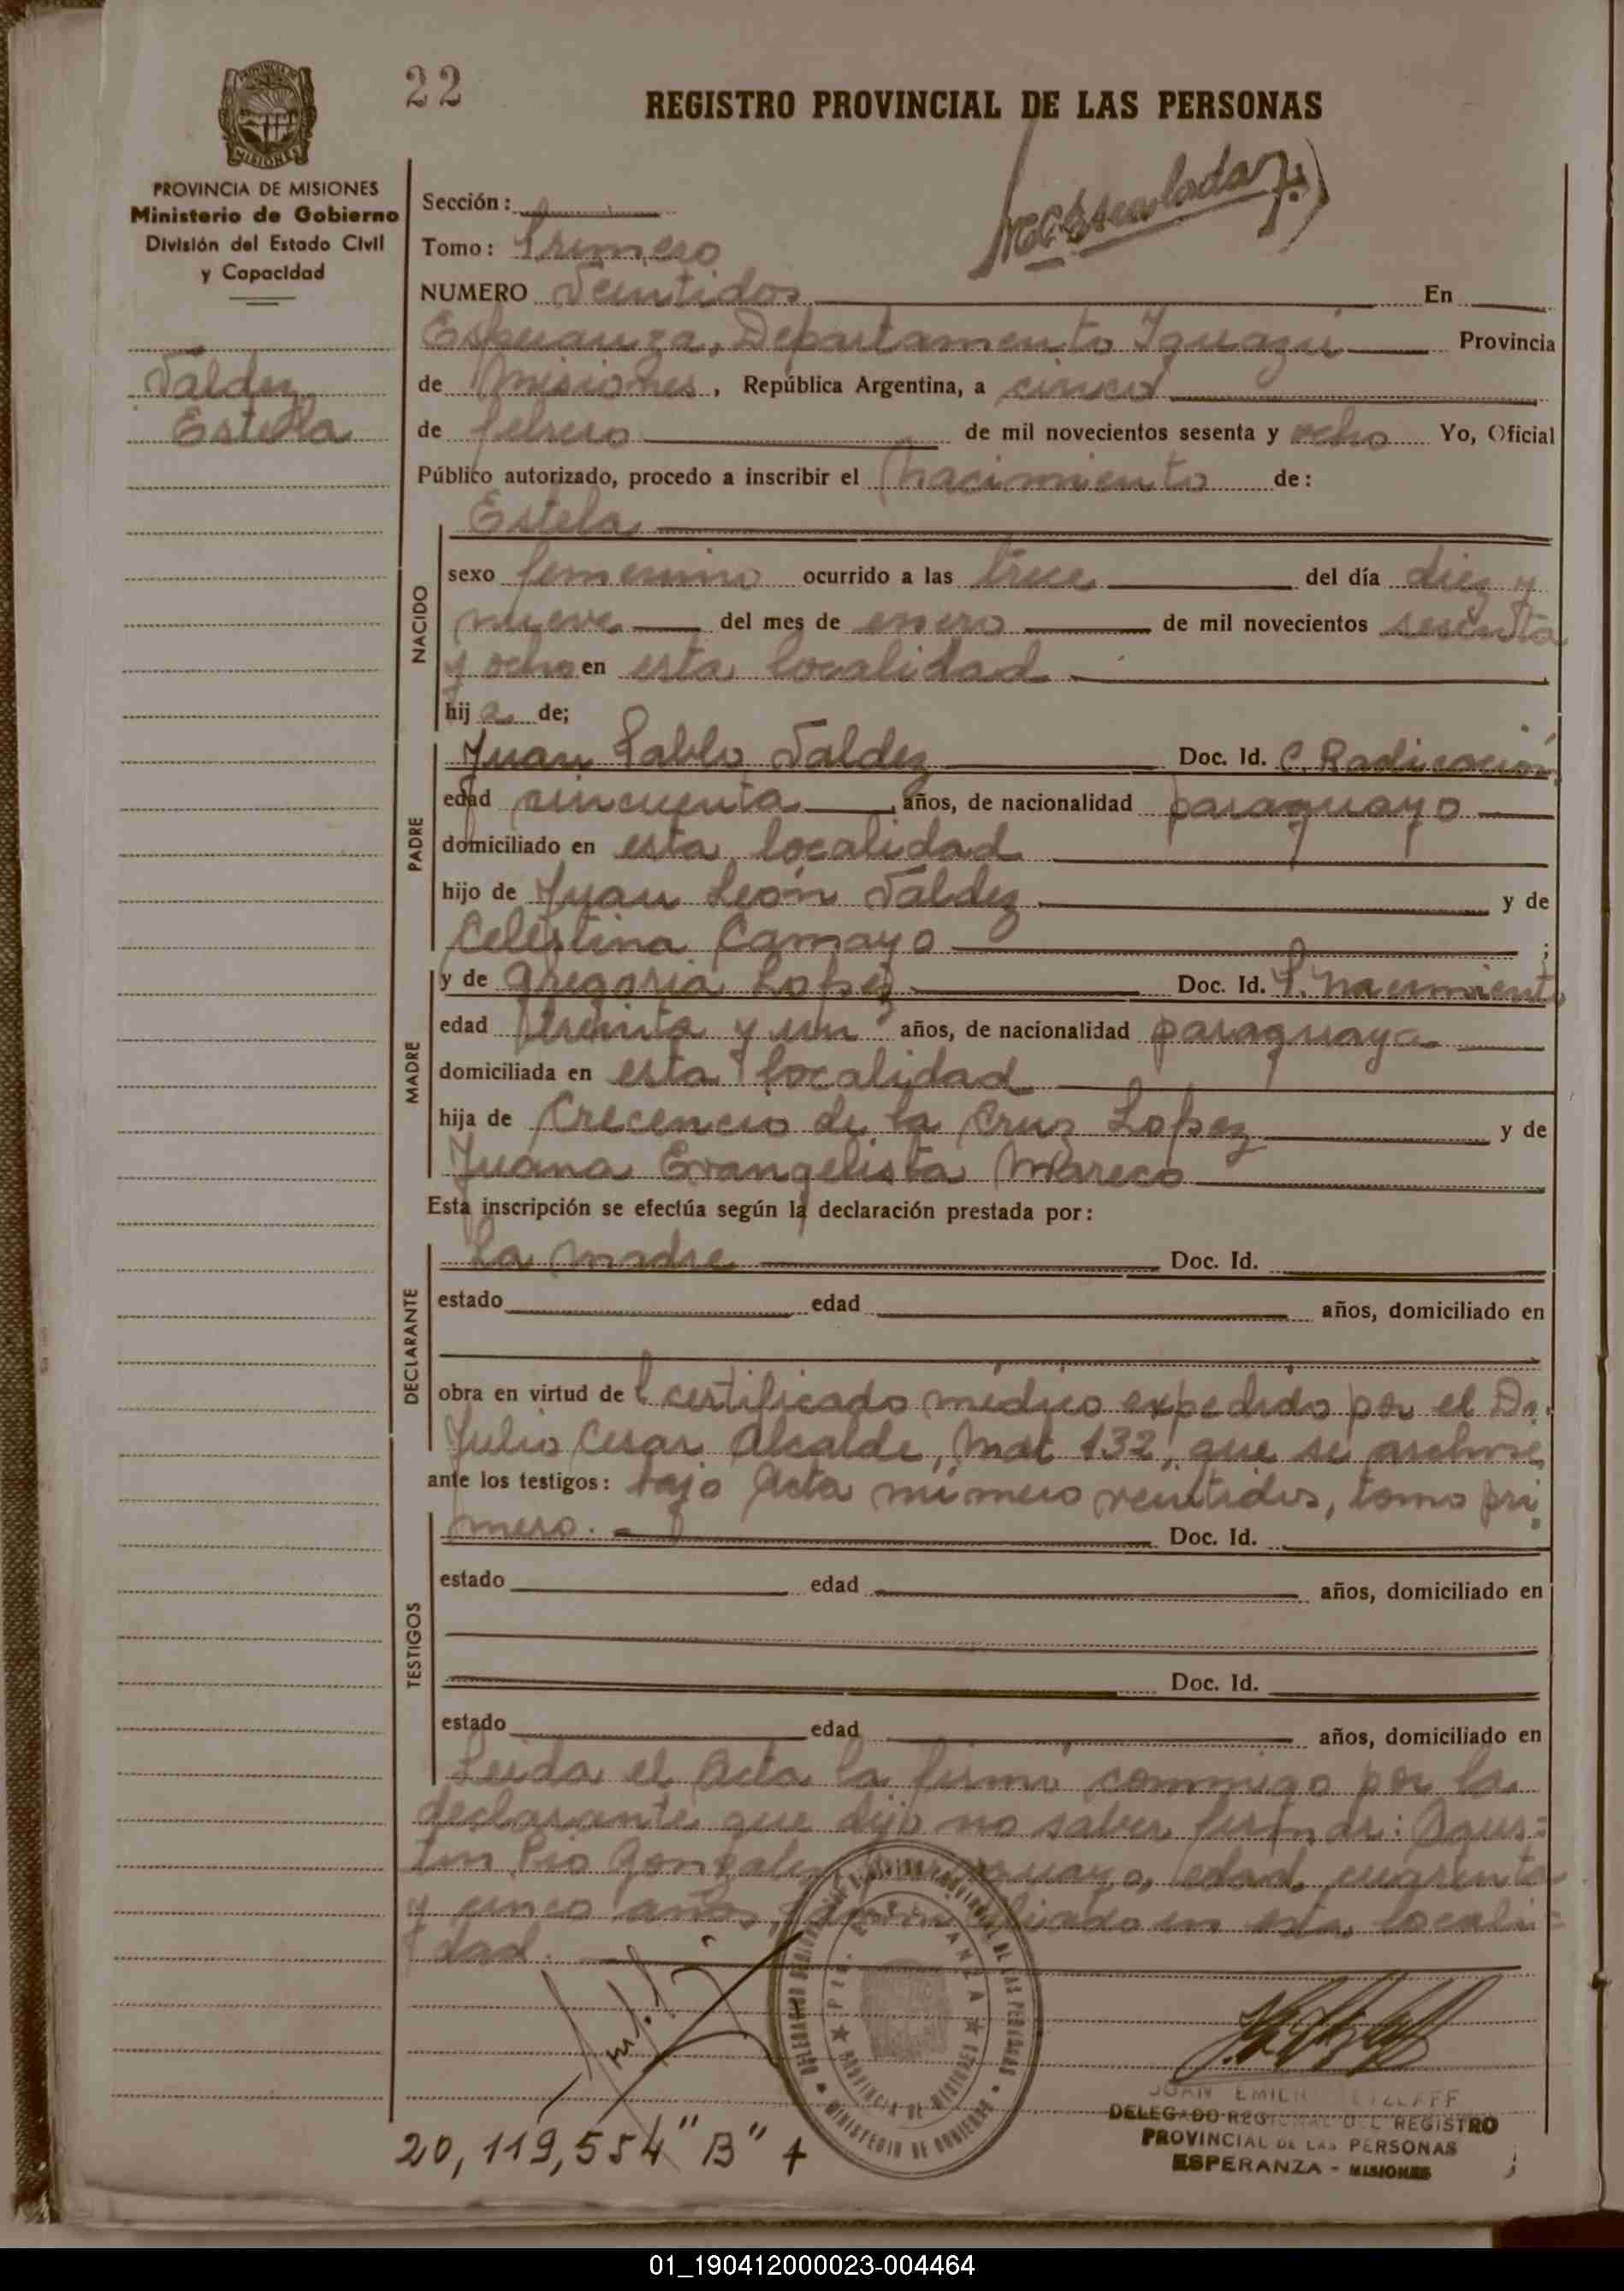 22
REGISTRO PROVINCIAL DE LAS PERSONAS
PROVINCIA DE MISIONES
MISIONES
PROVINCIA DE MISIONES
Ministerio de Gobierno
División del Estado Civil
y Capacidad
Valdez
Estela
Sección:
Tomo: Primero
NUMERO Veintidos En
Esperanza, Departamento Iguazú Provincia
de Misiones, República Argentina, a cinco
de febrero de mil novecientos sesenta y ocho Yo, Oficial
Público autorizado, procedo a inscribir el nacimiento de:
Estela
NACIDO
sexo femenino ocurrido a las trece del día diez y
nueve del mes de enero de mil novecientos sesenta
y ocho en esta localidad
hija de;
PADRE
Juan Pablo Valdez Doc. Id. C. Radicación
edad cincuenta años, de nacionalidad paraguayo
domiciliado en esta localidad
hijo de Juan León Valdez y de
Celestina Camayo ;
MADRE
y de Gregoria Lopez Doc. Id. P. Nacimiento
edad treinta y un años, de nacionalidad paraguaya
domiciliada en esta localidad
hija de Crecencio de la Cruz Lopez y de
Juana Evangelista Mareco
Esta inscripción se efectúa según la declaración prestada por:
DECLARANTE
La madre Doc. Id.
estado edad años, domiciliado en
obra en virtud del certificado médico expedido por el Dr.
Julio Cesar Alcalde, Mat 132, que se archiva
ante los testigos: bajo Acta número veintidos, tomo pri
mero. - Doc. Id.
TESTIGOS
estado edad años, domiciliado en
Doc. Id.
estado edad años, domiciliado en
Leida el Acta la firma conmigo por la
declarante que dijo no saber firmar: Agus=
tin Pio Gonzalez, paraguayo, edad cuarenta
y cinco años, domiciliado en esta locali=
dad.
PROVINCIAL DE LAS PERSONAS
MINISTERIO DE GOBIERNO
ESPERANZA
PROVINCIA DE MISIONES
JUAN EMILIO
DELEGADO REGIONAL DEL REGISTRO
PROVINCIAL DE LAS PERSONAS
ESPERANZA - MISIONES
20,119,554 "B" +
01_190412000023-004464